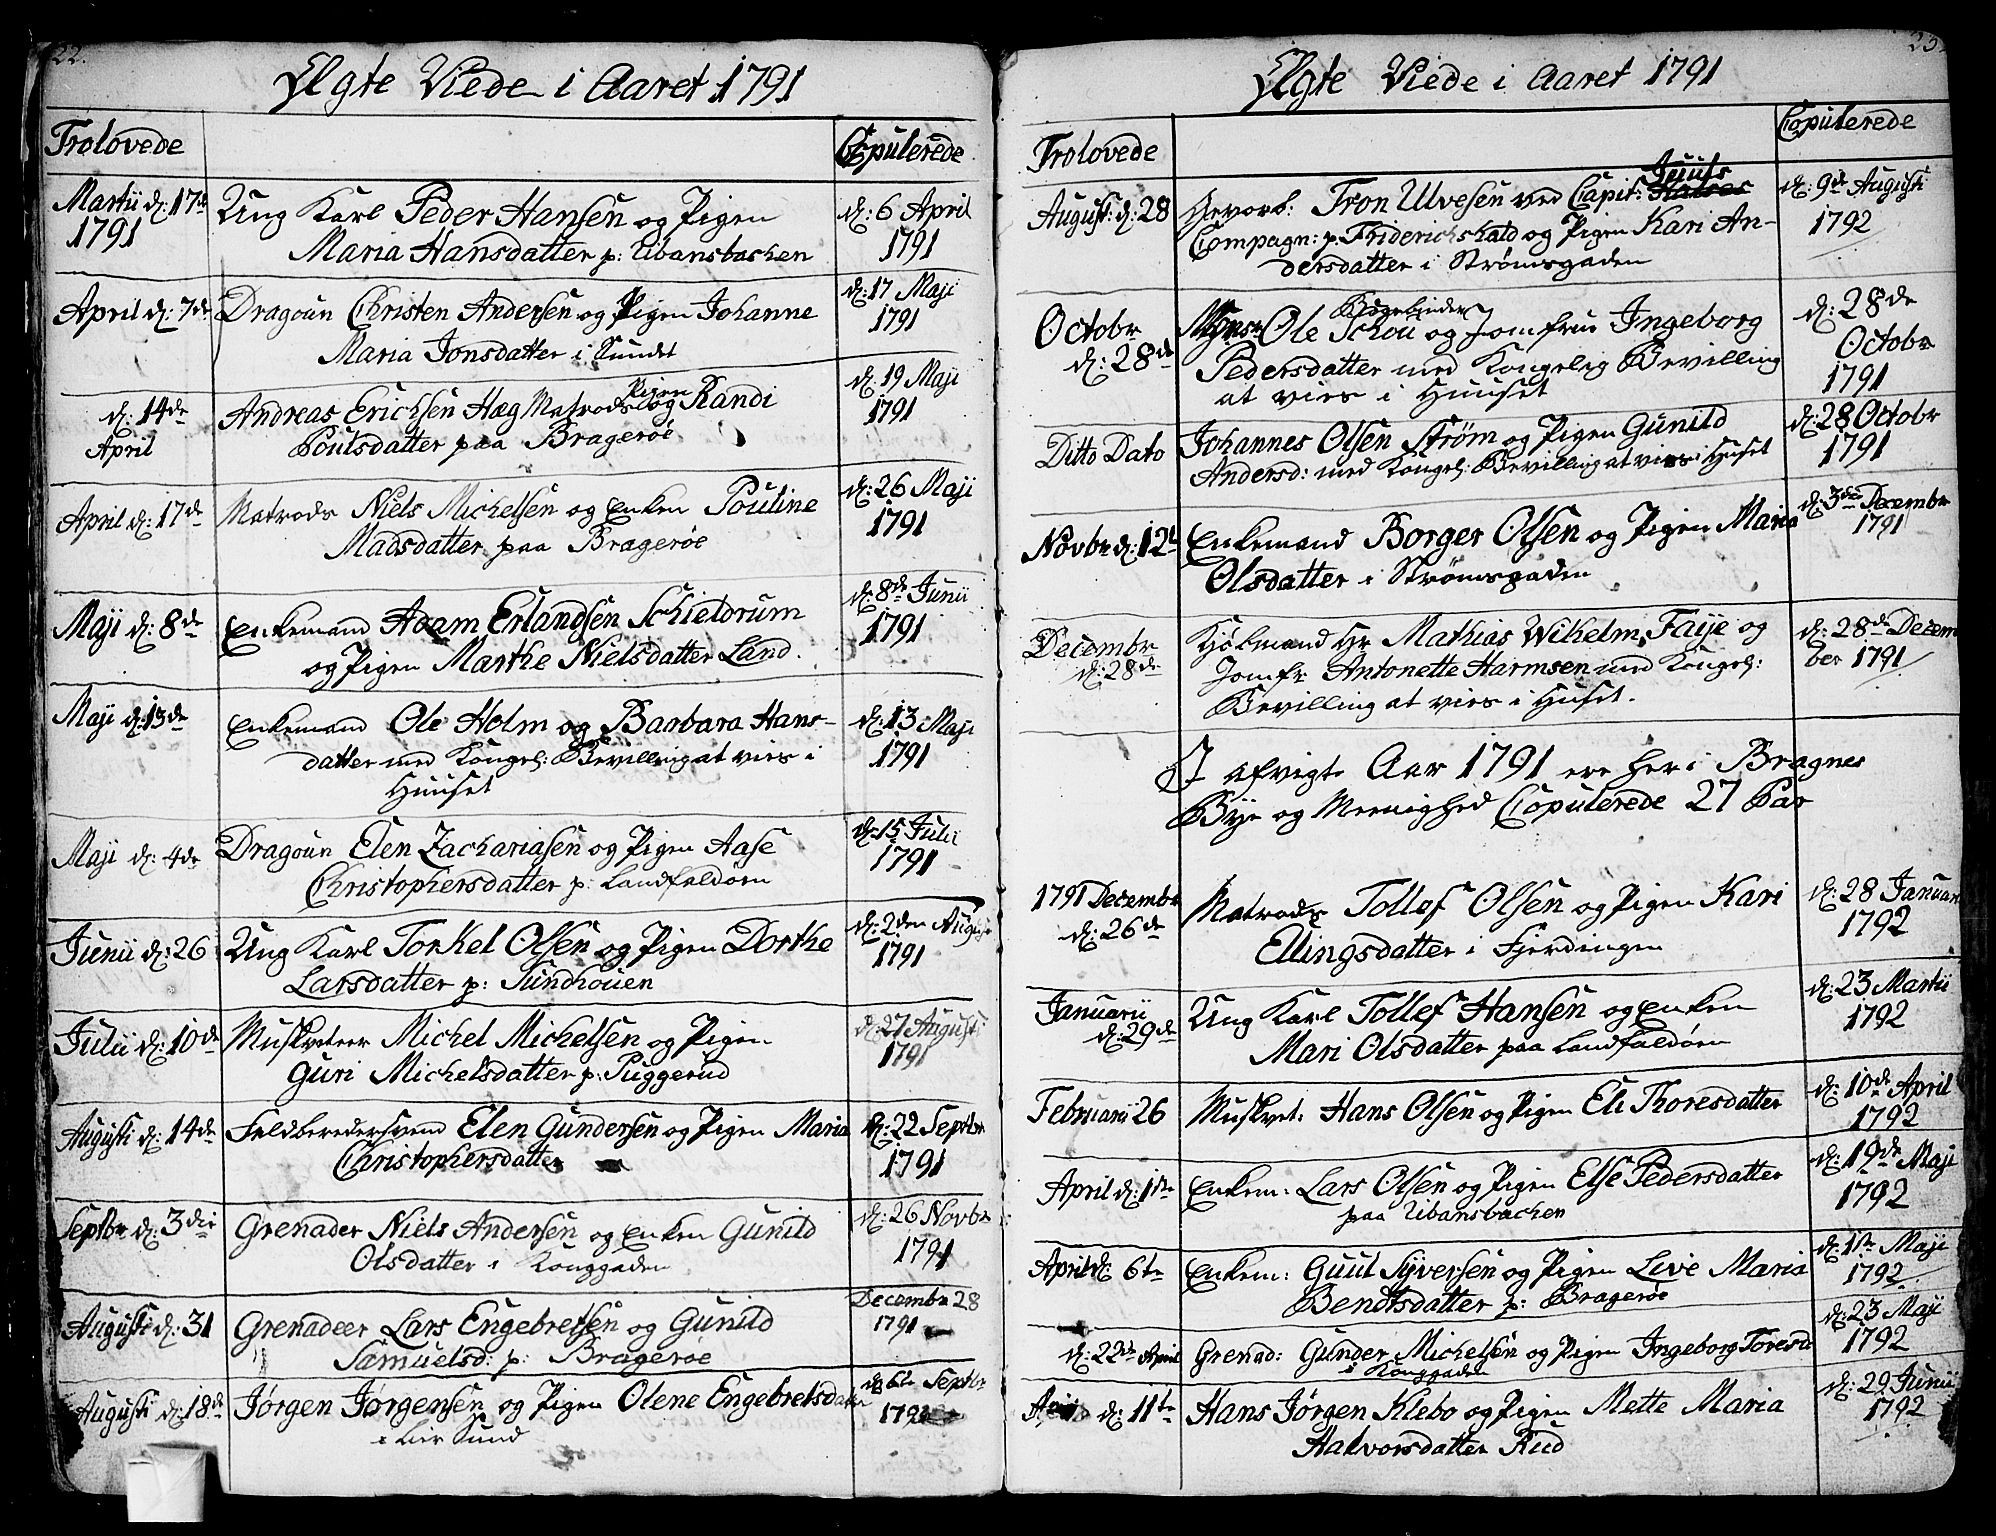 22.
Ægte Viede i Aaret 1791
Trolovede
Copulerede
Martii d: 17de
1791
Ung Karl Peder Hansen og Pigen
Maria Hansdatter p: Ubansbachen
d: 6 April
1791
April d: 7de
Dragoun Christen Andersen og Pigen Johanne
Maria Jonsdatter i Sundet
d: 17 Maji
1791
d: 14de
April
Pigen
Andreas Erichsen Hæg Matrods og Randi
Poulsdatter paa Bragerøe
d: 19 Maji
1791
April d: 17de
Matrods Niels Michelsen og Enken Pouline
Madsdatter paa Bragerøe
d: 26 Maji
1791
Maji d: 8de
Enkemand Adam Erlandsen Schieldrum
og Pigen Marthe Nielsdatter Land.
d: 8de Junii
1791
Maji d: 13de
Enkemand Ole Holm og Barbara Hans-
datter med Kongel: Bevilling at vies i
Huuset
d: 13 Maji
1791
Maji d: 4de
Dragoun Elen Zachariasen og Pigen Aase
Christophersdatter p: Landfaldøen
d: 15 Julii
1791
Junii d: 26
Ung Karl Torkel Olsen og Pigen Dorthe
Larsdatter p: Sundhouen
d: 2den Augusti
1791
Julii d: 10de
Muskveteer Michel Michelsen og Pigen
Guri Michelsdatter p: Puggerud
d: 27 Augusti
1791
Augusti d: 14de
Feldberedersvend Elen Gundersen og Pigen Maria
Christophersdatter
d: 22 Septbr
1791
Septbr d: 3die
Grenader Niels Andersen og Enken Gunild
Olsdatter i Konggaden
d: 26 Novbr
1791
Augusti d: 31
Grenadeer Lars Engebretsen og Gunild
Samuelsd: p: Bragerøe
Decembr 28
1791
Augusti d: 18de
Jørgen Jørgensen og Pigen Olene Engebretsdatter
i Lier Sund
d: 6te Septbr
1792
23.
Ægte Viede i Aaret 1791
Trolovede
Copulerede
August: d: 28
Juuls
Hevorb: Tron Ulvesen ved Capit:
Compagn: p: Friderichshald og Pigen Kari An-
dersdatter i Strømsgaden
d: 9de Augusti
1792
Octobr
d: 28de
Bogebinder
Monsr Ole Schou og Jomfrue Ingeborg
Pedersdatter med Kongelig Bevilling
at vies i Huuset
d: 28de
Octobr
1791
Ditto Dato
Johannes Olsen Strøm og Pigen Gunild
Andersd: med Kongel: Bevilling at vies i Huset
d: 28 Octobr
1791
Novbr d: 12te
Enkemand Borger Olsen og Pigen Maria
Olsdatter i Strømsgaden
d: 3die Decembr
1791
Decembr
d: 28de
Kjøbmand Hr Mathias Wilhelm Faye og
Jomfr Antonette Harmsen med Kongel:
Bevilling at vies i Huset.
d: 28de Decem
ber 1791
I afvigte Aar 1791 ere her i Bragnes
Bye og Meenighed Copulerede 27 Par
1791 Decembr
d: 26de
Matrods Tollef Olsen og Pigen Kari
Ellingsdatter i Fjerdingen
d: 28 Januari
1792
Januarii
d: 29de
Ung Karl Tollef Hansen og Enken
Mari Olsdatter paa Landfaldøen
d: 23 Martii
1792
Februarii 26
Muskvet: Hans Olsen og Pigen Eli Thoresdatter
d: 10de April
1792
April d: 1ste
Enkem: Lars Olsen og Pigen Else Pedersdatter
paa Ubansbachen
d: 19de Maji
1792
April d: 6te
Enkem: Guul Syversen og Pigen Live Maria
Bendtsdatter p: Bragerøe
d: 1ste Maji
1792
d: 22de April
Grenad: Gunder Michelsen og Pigen Ingeborg Toresd
i Konggaden
d: 23 Maji
1792
d: 11te
Hans Jørgen Klebo og Pigen Mette Maria
Halvorsdatter Rud
d: 29 Junii
1792